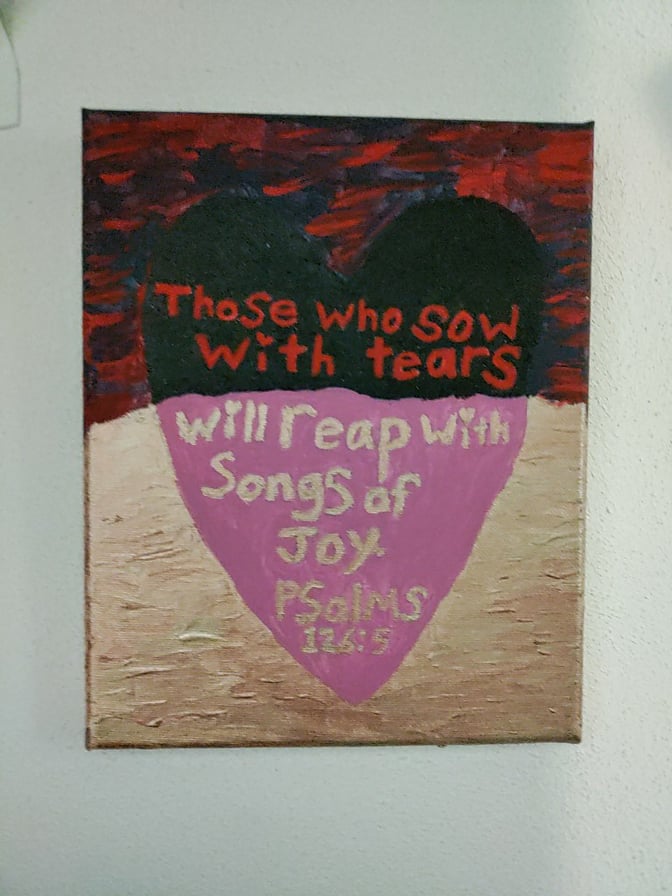 Those who sow
with tears
will reap with
Songs of
Joy.
PSalms
126:5